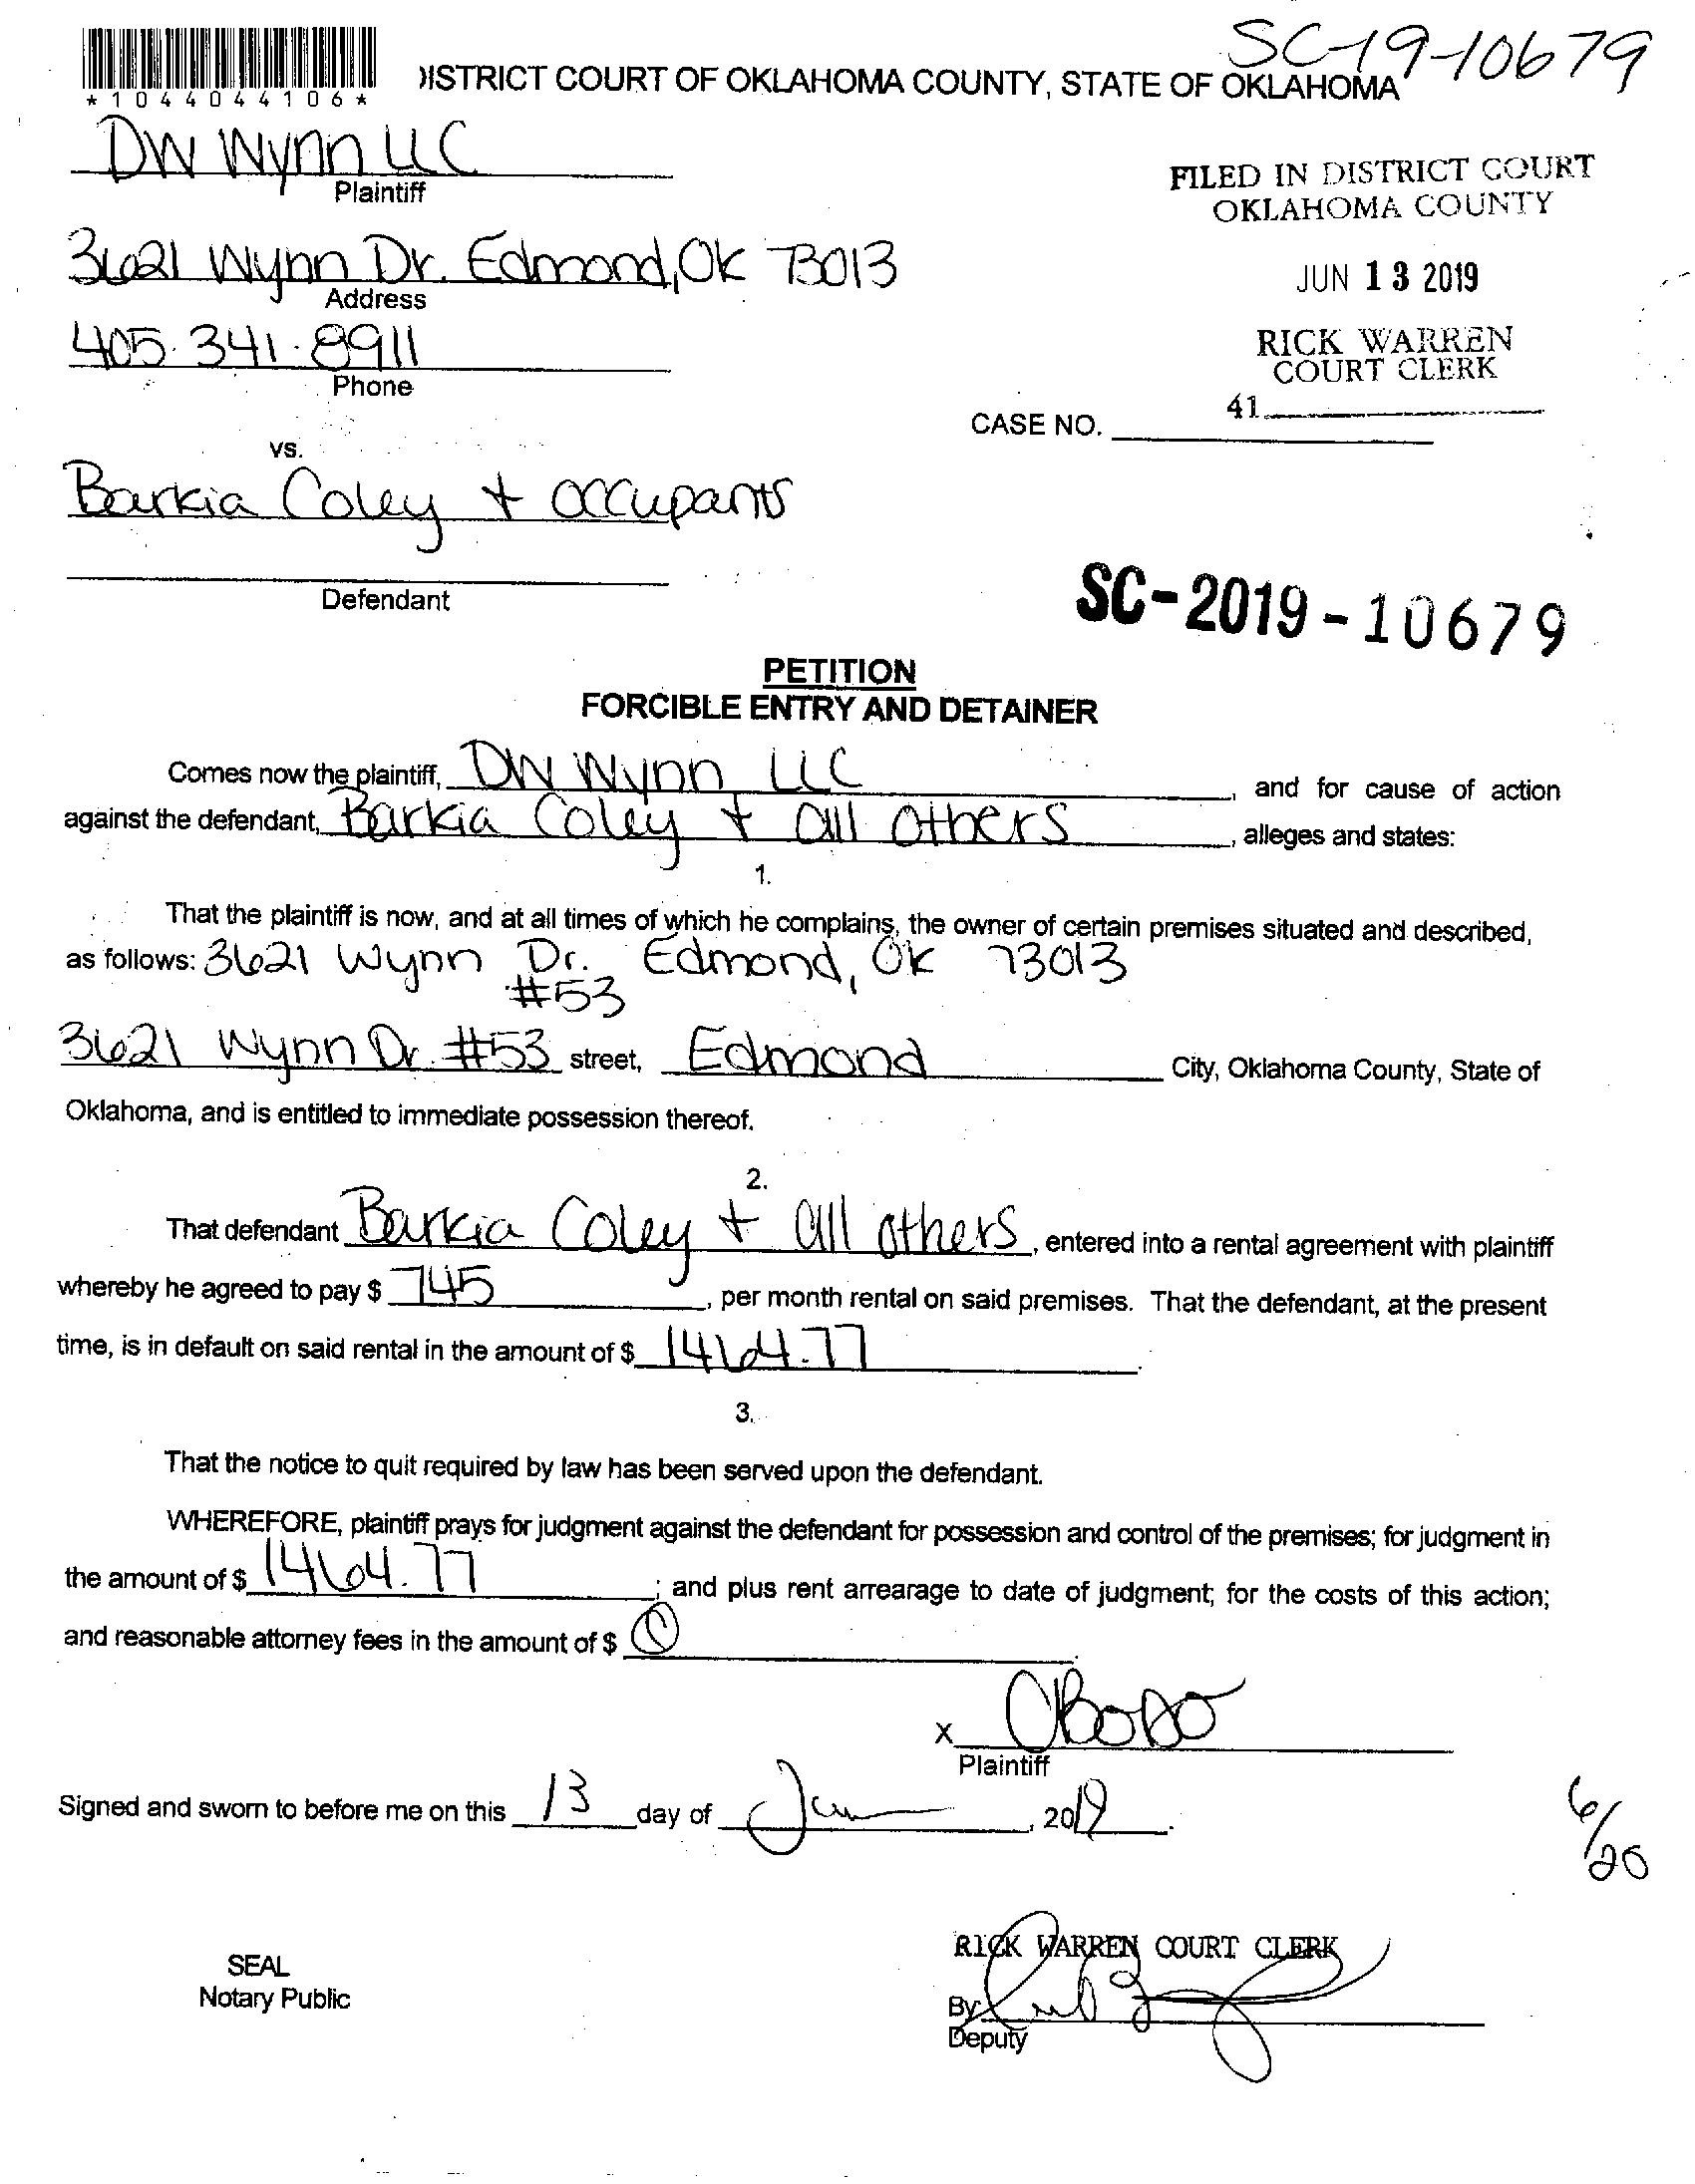 SC-19-10679
*1044044106*
DISTRICT COURT OF OKLAHOMA COUNTY, STATE OF OKLAHOMA
DW Wynn LLC
Plaintiff
FILED IN DISTRICT COURT
OKLAHOMA COUNTY
3621 Wynn Dr. Edmond, OK 73013
Address
JUN 13 2019
405.341.8911
Phone
RICK WARREN
COURT CLERK
41
CASE NO.
vs.
Barkia Coley + occupants
Defendant
SC-2019-10679
PETITION
FORCIBLE ENTRY AND DETAINER
Comes now the plaintiff, DW Wynn LLC, and for cause of action
against the defendant, Barkia Coley + all others, alleges and states:
1.
That the plaintiff is now, and at all times of which he complains, the owner of certain premises situated and described,
as follows: 3621 Wynn Dr. Edmond, OK 73013
#53
3621 Wynn Dr. #53 street, Edmond City, Oklahoma County, State of
Oklahoma, and is entitled to immediate possession thereof.
2.
That defendant Barkia Coley + all others, entered into a rental agreement with plaintiff
whereby he agreed to pay $ 745, per month rental on said premises. That the defendant, at the present
time, is in default on said rental in the amount of $ 1464.77.
3.
That the notice to quit required by law has been served upon the defendant.
WHEREFORE, plaintiff prays for judgment against the defendant for possession and control of the premises; for judgment in
the amount of $ 1464.77; and plus rent arrearage to date of judgment; for the costs of this action;
and reasonable attorney fees in the amount of $ 0.
X
Plaintiff
Signed and sworn to before me on this 13 day of Jun, 2019.
6/20
RICK WARREN COURT CLERK
SEAL
Notary Public
By
Deputy